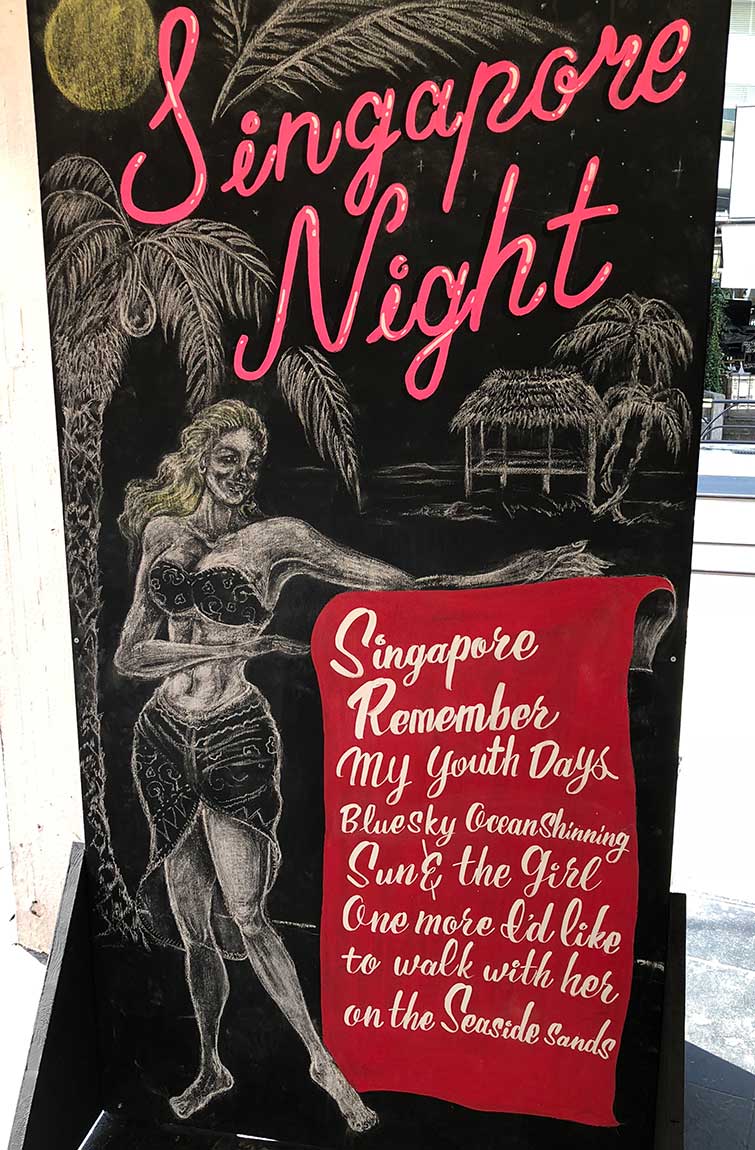 Singapore
Night
Singapore
Remember
My Youth Days
Blue sky Ocean Shinning
Sun & the Girl
One more I'd like
to walk with her
on the Seaside sands